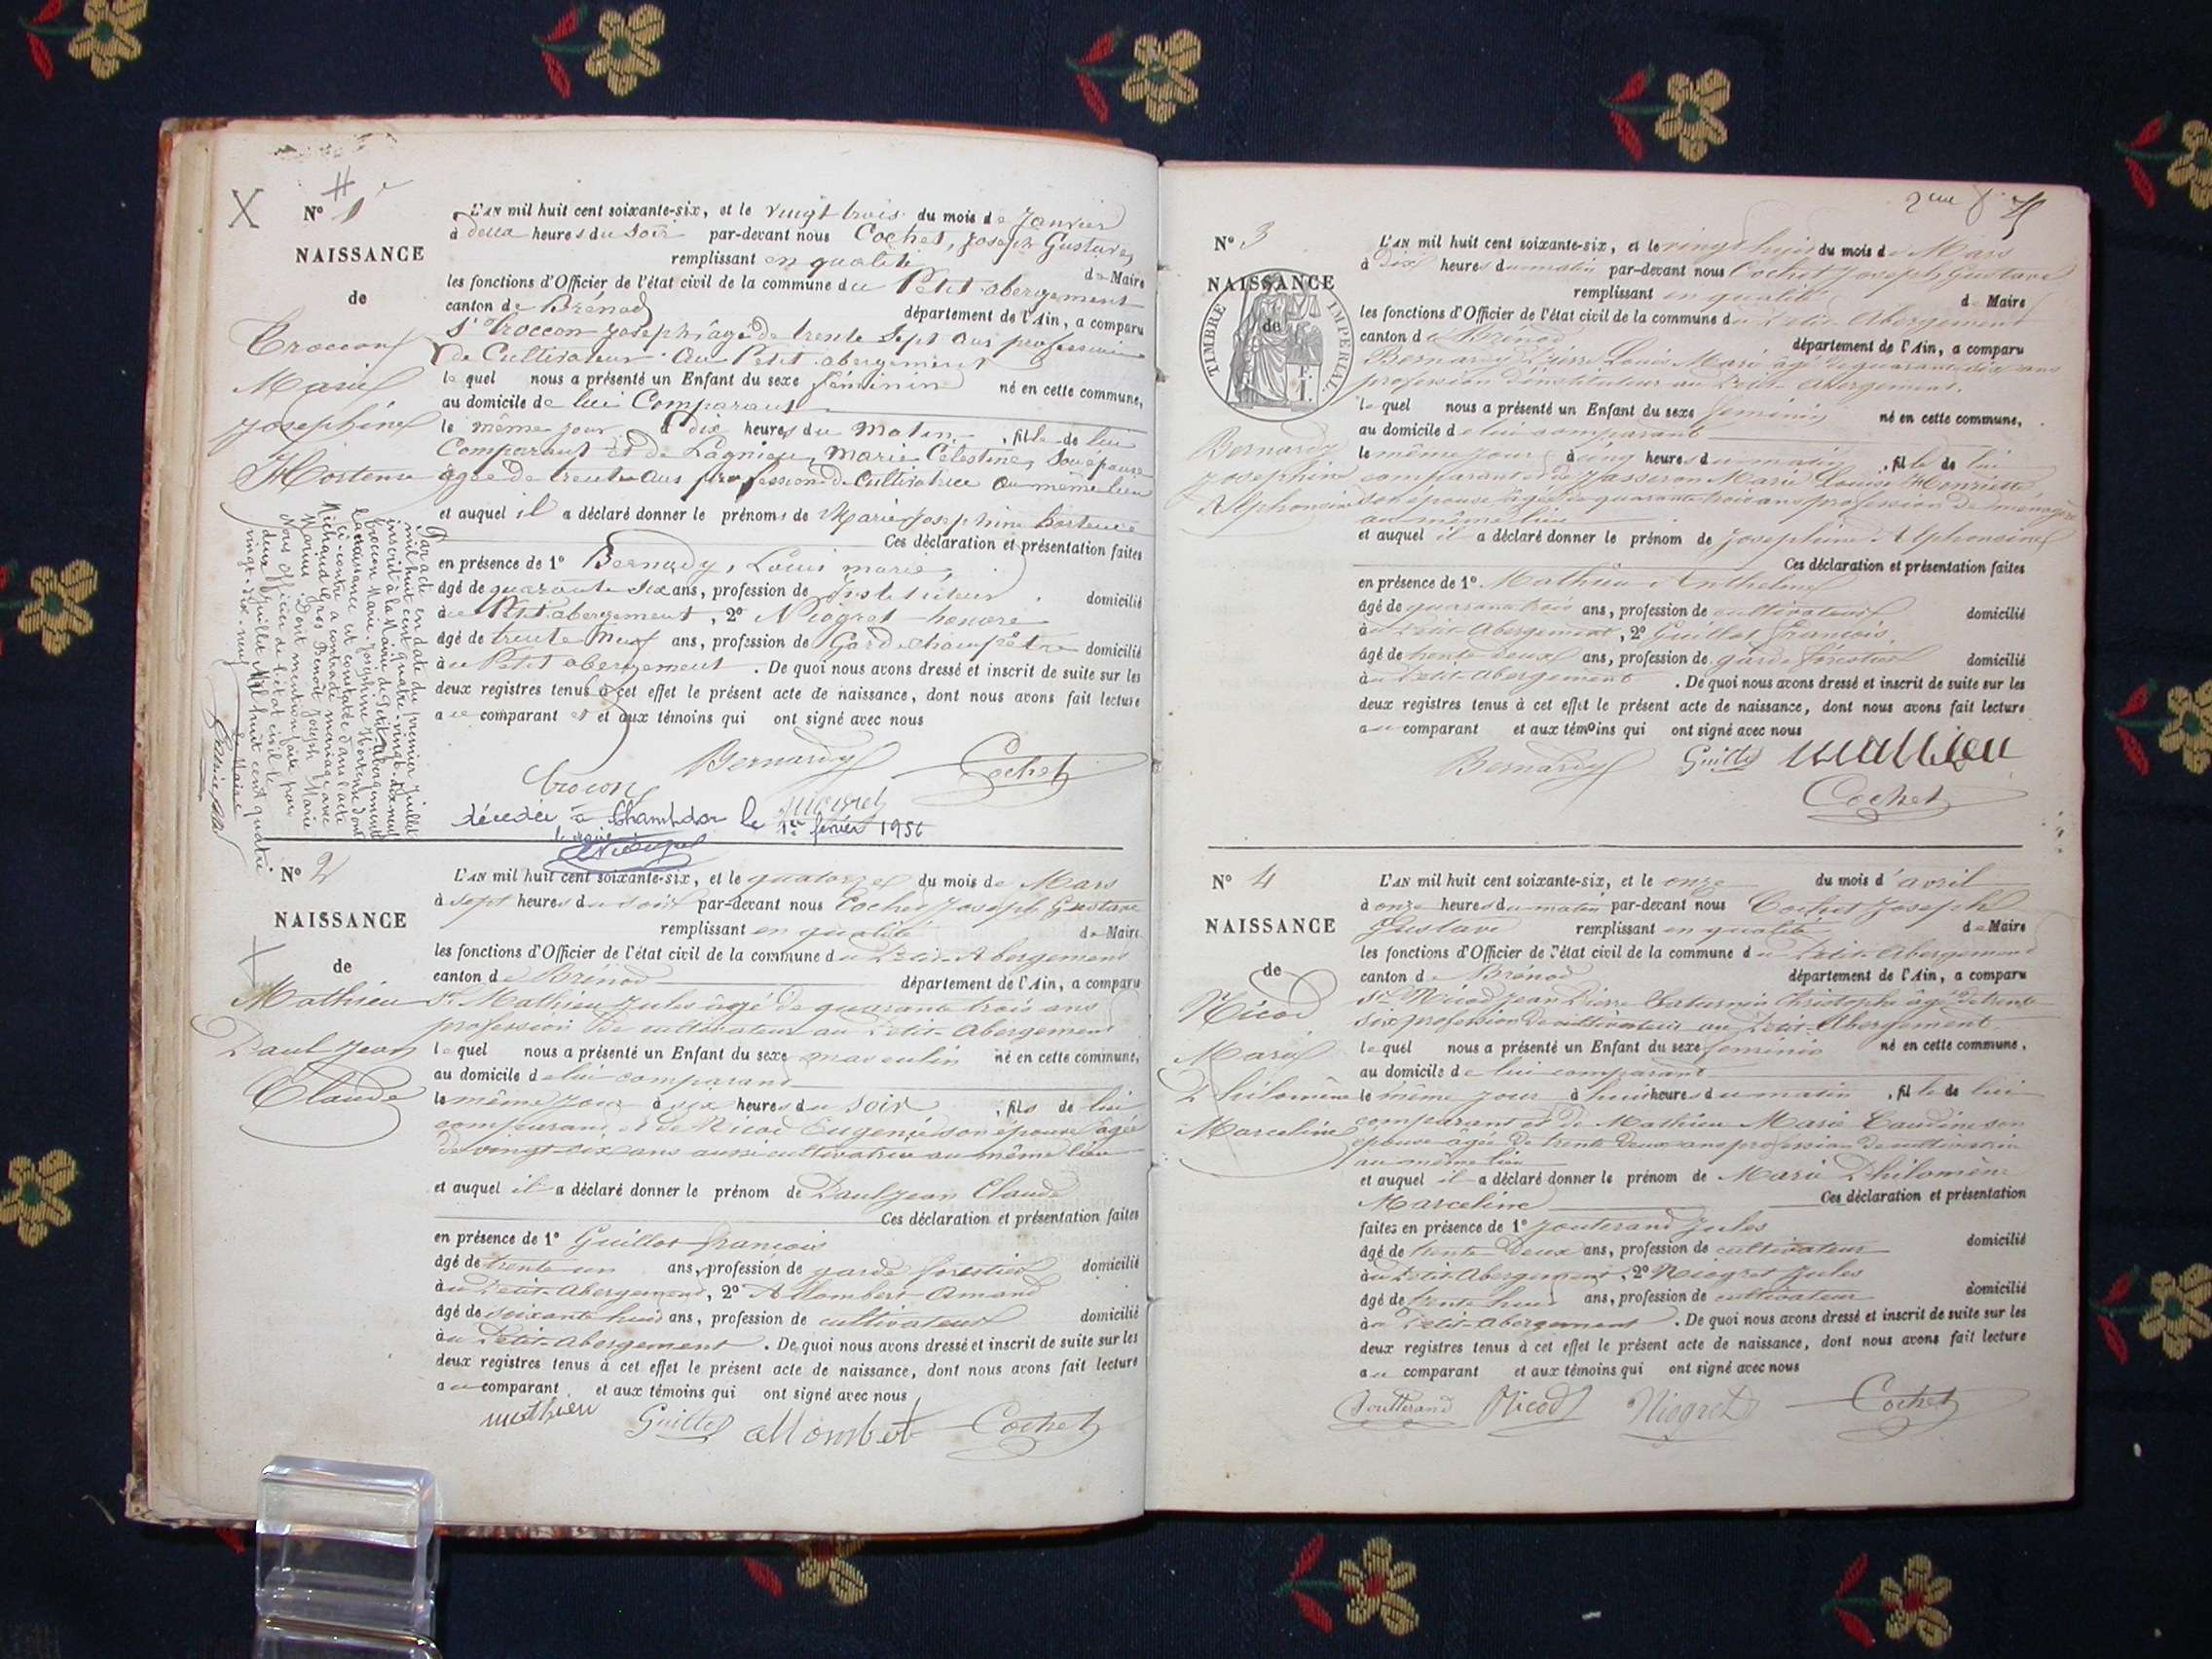 X
N° 1
NAISSANCE
de
Troccon
Marie
Joséphine
Hortense
L'AN mil huit cent soixante-six, et le vingt trois du mois de Janvier
à deux heures du Soir par-devant nous Cochet, Joseph Gustave,
remplissant en qualité de Maire
les fonctions d'Officier de l'état civil de la commune du Petit abergement
canton de Brénod département de l'Ain, a comparu
Sr Troccon Joseph âgé de trente Sept ans profession
de Cultivateur au Petit abergement
lequel nous a présenté un Enfant du sexe féminin né en cette commune,
au domicile de lui Comparant
le même jour à dix heures du matin, fille de lui
Comparant et de Lagnieu, Marie Célestine, Son épouse
âgée de trente ans profession de Cultivatrice au même lieu
et auquel il a déclaré donner le prénoms de Marie Josephine hortense
Ces déclaration et présentation faites
en présence de 1° Bernardy, Louis marie,
âgé de quarante six ans, profession de Instituteur domicilié
au Petit abergement, 2° Niogret honoré
âgé de trente neuf ans, profession de Garde champêtre domicilié
au Petit abergement. De quoi nous avons dressé et inscrit de suite sur les
deux registres tenus à cet effet le présent acte de naissance, dont nous avons fait lecture
au comparant et et aux témoins qui ont signé avec nous
Bernardy Cochet
Trocon
Niogret
décédée à Champdor le 1er février 1956
Par acte en date du premier Juillet
mil huit cent quatre-vingt-dix neuf
inscrit à la Mairie de Petit-Abergement
Trocon Marie-Joséphine Hortense dont
la naissance est constatée dans l'acte
ci-contre a contracté mariage avec
Michaud Gros Benoît Joseph Marie
Marius. Dont mention faite par
Nous Officier de l'état civil le
deux Juillet Mil huit cent quatre
vingt-dix-neuf
Le Maire
N° 2
NAISSANCE
de
Mathieu
Paul Jean
Claude
L'AN mil huit cent soixante-six, et le quatorze du mois de Mars
à sept heures du soir par-devant nous Cochet Joseph Gustave
remplissant en qualité de Maire
les fonctions d'Officier de l'état civil de la commune du Petit-Abergement
canton de Brénod département de l'Ain, a comparu
Sr Mathieu Jules âgé de quarante trois ans
profession de cultivateur au Petit-Abergement
lequel nous a présenté un Enfant du sexe masculin né en cette commune,
au domicile de lui comparant
le même jour à six heures du soir, fils de lui
comparant et de Nicod Eugénie son épouse âgée
de vingt-six ans aussi cultivatrice au même lieu
et auquel il a déclaré donner le prénom de Paul Jean Claude
Ces déclaration et présentation faites
en présence de 1° Guillot françois
âgé de trente un ans, profession de garde forestier domicilié
au Petit-Abergement, 2° Allombert Amand
âgé de soixante huit ans, profession de cultivateur domicilié
au Petit-abergement. De quoi nous avons dressé et inscrit de suite sur les
deux registres tenus à cet effet le présent acte de naissance, dont nous avons fait lecture
au comparant et aux témoins qui ont signé avec nous
mathieu Guillot allombert Cochet
N° 3
NAISSANCE
de
TIMBRE IMPÉRIAL
Bernardy
Josephine
Alphonsine
L'AN mil huit cent soixante-six, et le vingt huit du mois de Mars
à Dix heures du matin par-devant nous Cochet Joseph Gustave
remplissant en qualité de Maire
les fonctions d'Officier de l'état civil de la commune du Petit Abergement
canton de Brénod département de l'Ain, a comparu
Bernardy Pierre Louis Marie âgé de quarante six ans
profession d'instituteur au Petit-Abergement.
lequel nous a présenté un Enfant du sexe féminin né en cette commune,
au domicile de lui comparant
le même jour à cinq heures du matin, fille de lui
comparant et de Jasseron Marie Louise Henriette
son épouse âgée de quarante trois ans profession de ménagère
au même lieu
et auquel il a déclaré donner le prénom de Josephine Alphonsine
Ces déclaration et présentation faites
en présence de 1° Mathieu Anthelme
âgé de quarante trois ans, profession de cultivateur domicilié
au Petit-Abergement, 2° Guillot françois,
âgé de trente deux ans, profession de garde forestier domicilié
au Petit-abergement. De quoi nous avons dressé et inscrit de suite sur les
deux registres tenus à cet effet le présent acte de naissance, dont nous avons fait lecture
au comparant et aux témoins qui ont signé avec nous
Bernardy Guillot mathieu
Cochet
N° 4
NAISSANCE
de
Nicod
Marie
Philomène
Marceline
L'AN mil huit cent soixante-six, et le onze du mois d'avril
à onze heures du matin par-devant nous Cochet Joseph
Gustave remplissant en qualité de Maire
les fonctions d'Officier de l'état civil de la commune du Petit-Abergement
canton de Brénod département de l'Ain, a comparu
Sr Nicod Jean Pierre Saturnin Christophe âgé de trente
six profession de cultivateur au Petit-Abergement
lequel nous a présenté un Enfant du sexe féminin né en cette commune,
au domicile de lui comparant
le même jour à huit heures du matin, fille de lui
comparant et de Mathieu Marie Claudine son
épouse âgée de trente deux ans profession de cultivatrice
au même lieu
et auquel il a déclaré donner le prénom de Marie Philomène
Marceline Ces déclaration et présentation
faites en présence de 1° Jouterand Jules
âgé de trente deux ans, profession de cultivateur domicilié
au Petit-Abergement, 2° Niogret Jules
âgé de trente huit ans, profession de cultivateur domicilié
au Petit-abergement. De quoi nous avons dressé et inscrit de suite sur les
deux registres tenus à cet effet le présent acte de naissance, dont nous avons fait lecture
au comparant et aux témoins qui ont signé avec nous
Joutterand Nicod Niogret Cochet